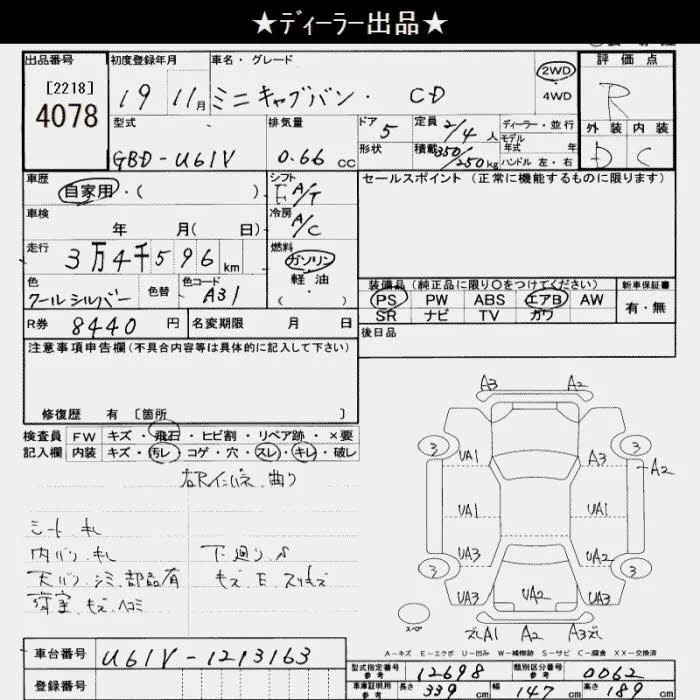 ★ディーラー出品★
出品番号 初度登録年月 車名・グレード 評価点
[2218] 4078 19 11月 ミニキャブバン・ CD 2WD 4WD R
型式 排気量 ドア 定員 ディーラー・並行 外装 内装
GBD-U61V 0.66 cc 5 2/4人 モデル年式 年 D C
形状 積載 350/250kg ハンドル 左・右
車歴 自家用・( ) シフト F A/T セールスポイント (正常に機能するものに限ります)
車検 年 月( 日) 冷房 A/C
走行 3万4千596km 燃料 ガソリン
軽油
( )
色 クールシルバー 色替 色コード A31
装備品(純正品に限り○をつけてください) 新車保証書
PS PW ABS エアB AW 有・無
SR ナビ TV ガワ
R券 8440円 名変期限 月 日 後日品
注意事項申告欄(不具合内容等は具体的に記入して下さい)
修復歴 有 [箇所 ]
検査員 FW キズ・飛石・ヒビ割・リペア跡・×要
記入欄 内装 キズ・汚レ・コゲ・穴・スレ・キレ・破レ
曲り
シート キレ
内バリ キレ 下廻り
天バリ シミ 部品有 キズ E
荷室 キズ ヘコミ
A3 A2
3 3
UA1 A3 A2
UA1 UA1
UA3 UA2
3 3
UA3 UA2 UA3
スペア
A1 A2 A3
A-キズ E-エクボ U-凹み W-補修跡 S-サビ C-腐食 XX-交換済
車台番号 U61V-1213163
登録番号
型式指定番号 参考 12698 類別区分番号 参考 0062
車庫証明用 参考 長さ 339cm 幅 147cm 高さ 189cm